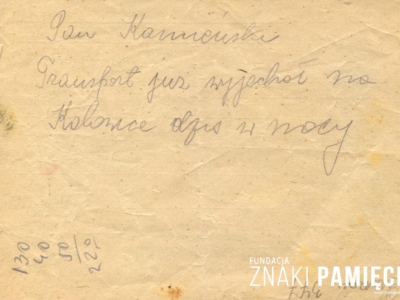 Pan Kamiński
Transport już wyjechał na
Katowice dziś w nocy
130
40
50
220
FUNDACJA
ZNAKI PAMIĘCI